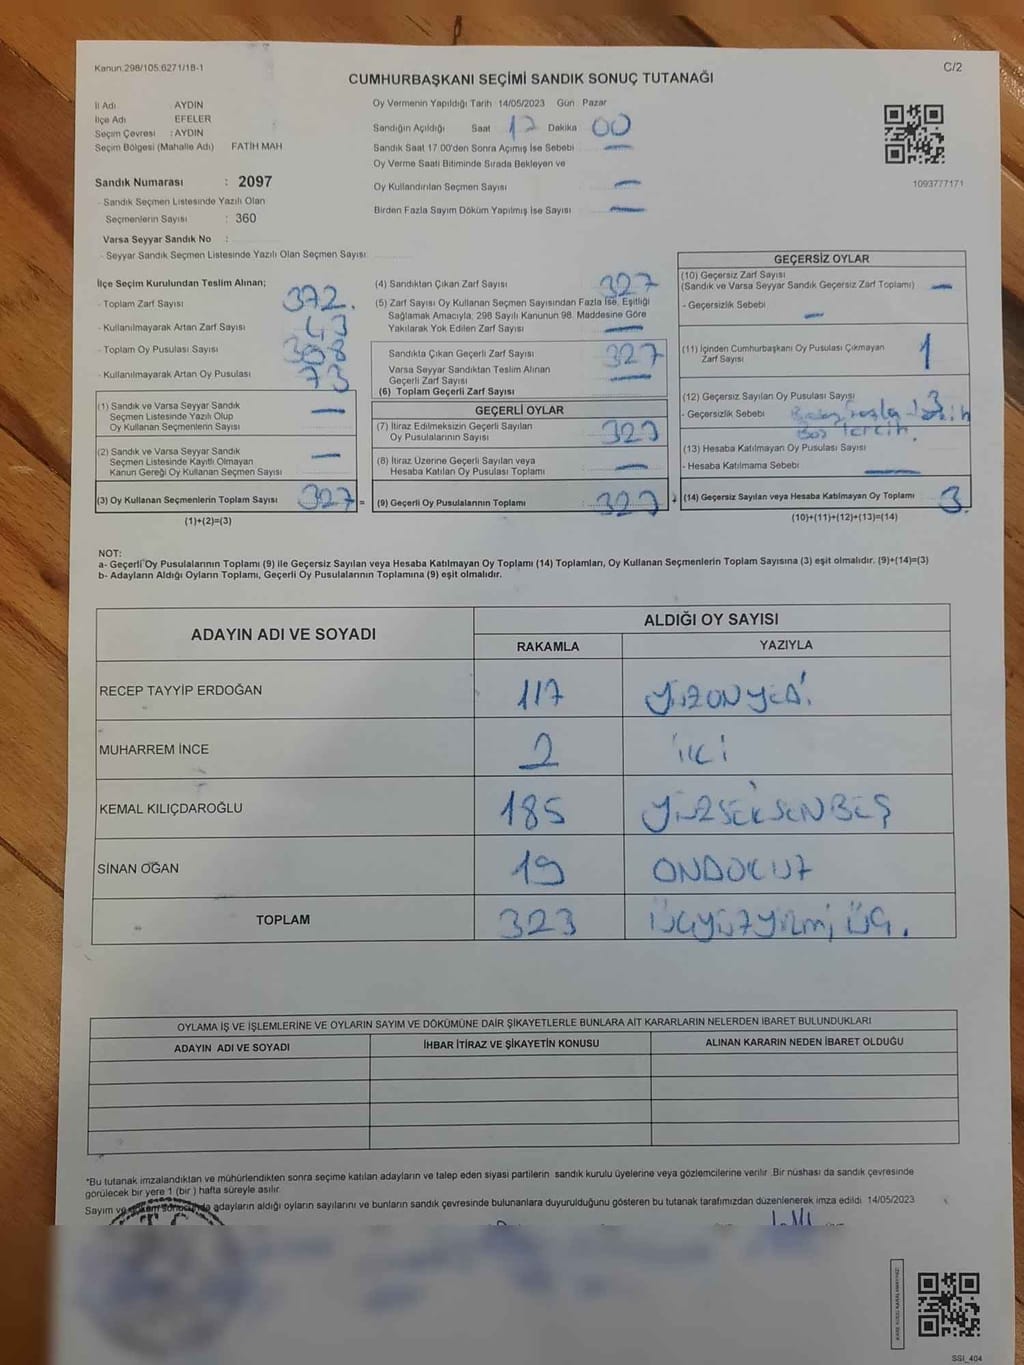 Kanun.298/105.6271/1B-1
C/2
CUMHURBAŞKANI SEÇİMİ SANDIK SONUÇ TUTANAĞI
İl Adı : AYDIN
İlçe Adı : EFELER
Seçim Çevresi : AYDIN
Seçim Bölgesi (Mahalle Adı) FATİH MAH
Oy Vermenin Yapıldığı Tarih 14/05/2023 Gün Pazar
Sandığın Açıldığı Saat 17 Dakika 00
Sandık Saat 17.00'den Sonra Açımış İse Sebebi —
Oy Verme Saati Bitiminde Sırada Bekleyen ve
Oy Kullandırılan Seçmen Sayısı —
Birden Fazla Sayım Döküm Yapılmış İse Sayısı —
1093777171
Sandık Numarası : 2097
- Sandık Seçmen Listesinde Yazılı Olan
Seçmenlerin Sayısı : 360
Varsa Seyyar Sandık No :
- Seyyar Sandık Seçmen Listesinde Yazılı Olan Seçmen Sayısı
İlçe Seçim Kurulundan Teslim Alınan;
- Toplam Zarf Sayısı 372.
- Kullanılmayarak Artan Zarf Sayısı 43
- Toplam Oy Pusulası Sayısı
- Kullanılmayarak Artan Oy Pusulası 73
(1) Sandık ve Varsa Seyyar Sandık
Seçmen Listesinde Yazılı Olup
Oy Kullanan Seçmenlerin Sayısı —
(2) Sandık ve Varsa Seyyar Sandık
Seçmen Listesinde Kayıtlı Olmayan
Kanun Gereği Oy Kullanan Seçmen Sayısı —
(3) Oy Kullanan Seçmenlerin Toplam Sayısı 327 =
(1)+(2)=(3)
(4) Sandıktan Çıkan Zarf Sayısı 327
(5) Zarf Sayısı Oy Kullanan Seçmen Sayısından Fazla İse, Eşitliği
Sağlamak Amacıyla; 298 Sayılı Kanunun 98. Maddesine Göre
Yakılarak Yok Edilen Zarf Sayısı —
Sandıkta Çıkan Geçerli Zarf Sayısı 327
Varsa Seyyar Sandıktan Teslim Alınan
Geçerli Zarf Sayısı —
(6) Toplam Geçerli Zarf Sayısı
GEÇERLİ OYLAR
(7) İtiraz Edilmeksizin Geçerli Sayılan
Oy Pusulalarının Sayısı 323
(8) İtiraz Üzerine Geçerli Sayılan veya
Hesaba Katılan Oy Pusulası Toplamı —
(9) Geçerli Oy Pusulalarının Toplamı 323 +
GEÇERSİZ OYLAR
(10) Geçersiz Zarf Sayısı
(Sandık ve Varsa Seyyar Sandık Geçersiz Zarf Toplamı) —
- Geçersizlik Sebebi —
(11) İçinden Cumhurbaşkanı Oy Pusulası Çıkmayan
Zarf Sayısı 1
(12) Geçersiz Sayılan Oy Pusulası Sayısı 3
- Geçersizlik Sebebi
Boş tercih.
(13) Hesaba Katılmayan Oy Pusulası Sayısı
- Hesaba Katılmama Sebebi —
(14) Geçersiz Sayılan veya Hesaba Katılmayan Oy Toplamı 3.
(10)+(11)+(12)+(13)=(14)
NOT:
a- Geçerli Oy Pusulalarının Toplamı (9) ile Geçersiz Sayılan veya Hesaba Katılmayan Oy Toplamı (14) Toplamları, Oy Kullanan Seçmenlerin Toplam Sayısına (3) eşit olmalıdır. (9)+(14)=(3)
b- Adayların Aldığı Oyların Toplamı, Geçerli Oy Pusulalarının Toplamına (9) eşit olmalıdır.
ADAYIN ADI VE SOYADI
ALDIĞI OY SAYISI
RAKAMLA YAZIYLA
RECEP TAYYİP ERDOĞAN 117 YÜZONYEDİ
MUHARREM İNCE 2 İKİ
KEMAL KILIÇDAROĞLU 185 YÜZSEKSENBEŞ
SİNAN OĞAN 19 ONDOKUZ
TOPLAM 323 ÜÇYÜZYİRMİ ÜÇ.
OYLAMA İŞ VE İŞLEMLERİNE VE OYLARIN SAYIM VE DÖKÜMÜNE DAİR ŞİKAYETLERLE BUNLARA AİT KARARLARIN NELERDEN İBARET BULUNDUKLARI
ADAYIN ADI VE SOYADI İHBAR İTİRAZ VE ŞİKAYETİN KONUSU ALINAN KARARIN NEDEN İBARET OLDUĞU
*Bu tutanak imzalandıktan ve mühürlendikten sonra seçime katılan adayların ve talep eden siyasi partilerin sandık kurulu üyelerine veya gözlemcilerine verilir. Bir nüshası da sandık çevresinde
görülecek bir yere 1 (bir ) hafta süreyle asılır.
Sayım ve döküm sonucunda adayların aldığı oyların sayılarını ve bunların sandık çevresinde bulunanlara duyurulduğunu gösteren bu tutanak tarafımızdan düzenlenerek imza edildi. 14/05/2023
SSI_404